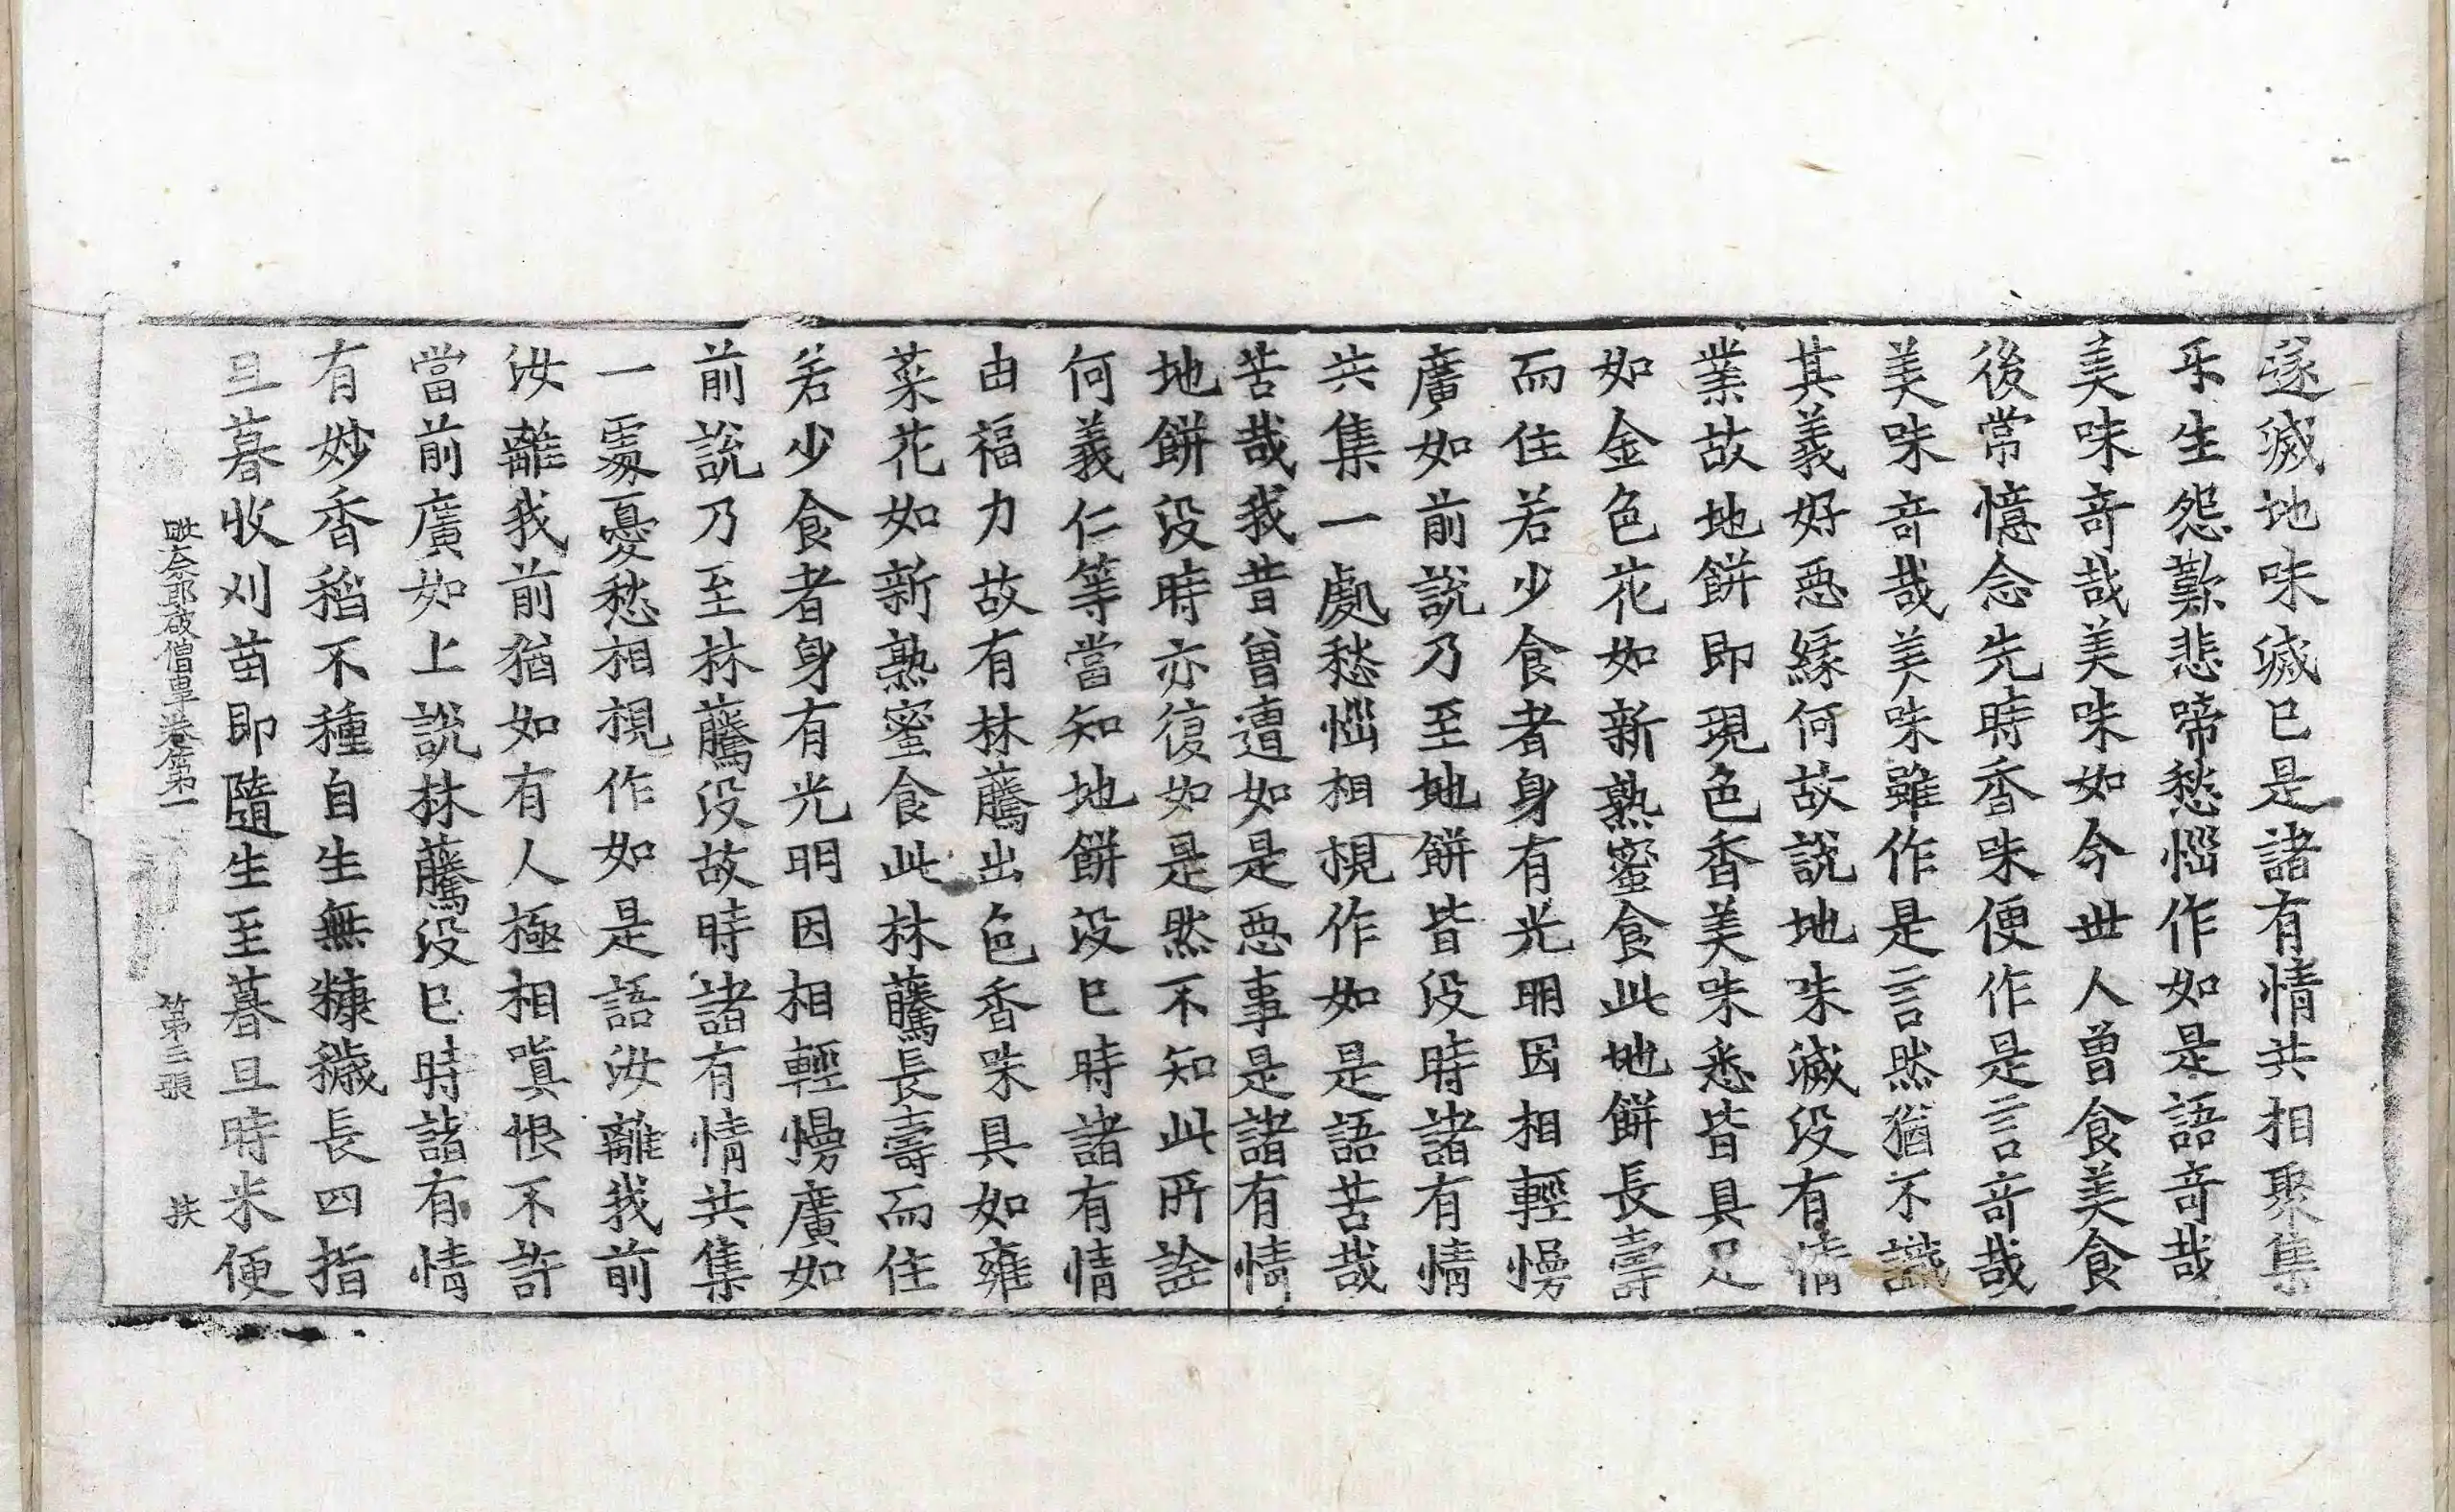 遂滅地味滅已是諸有情共相聚集
乐生怨歎悲啼愁惱作如是語奇哉
美味奇哉美味如今世人曾食美食
後常憶念先時香味便作是言奇哉
美味奇哉美味雖作是言然猶不識
其義好惡緣何故說地味滅没有情
業故地餅即現色香美味悉皆具足
如金色花如新熟蜜食此地餅長壽
而住若少食者身有光明因相輕慢
廣如前說乃至地餅皆没時諸有情
共集一處愁惱相視作如是語苦哉
苦哉我昔曾遭如是惡事是諸有情
地餅没時亦復如是然不知此所詮
何義仁等當知地餅没已時諸有情
由福力故有林藤出色香味具如雍
菜花如新熟蜜食此林藤長壽而住
若少食者身有光明因相輕慢廣如
前說乃至林藤没故時諸有情共集
一處憂愁相視作如是語汝離我前
汝離我前猶如有人極相嗔恨不許
當前廣如上說林藤没已時諸有情
有妙香稻不種自生無糠穢長四指
旦暮收刈苗即隨生至暮旦時米便
毗奈耶破僧事卷第一 第三張 扶